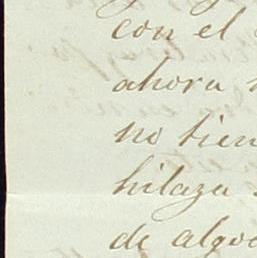 con el
ahora
no tien
hilaza
de algo